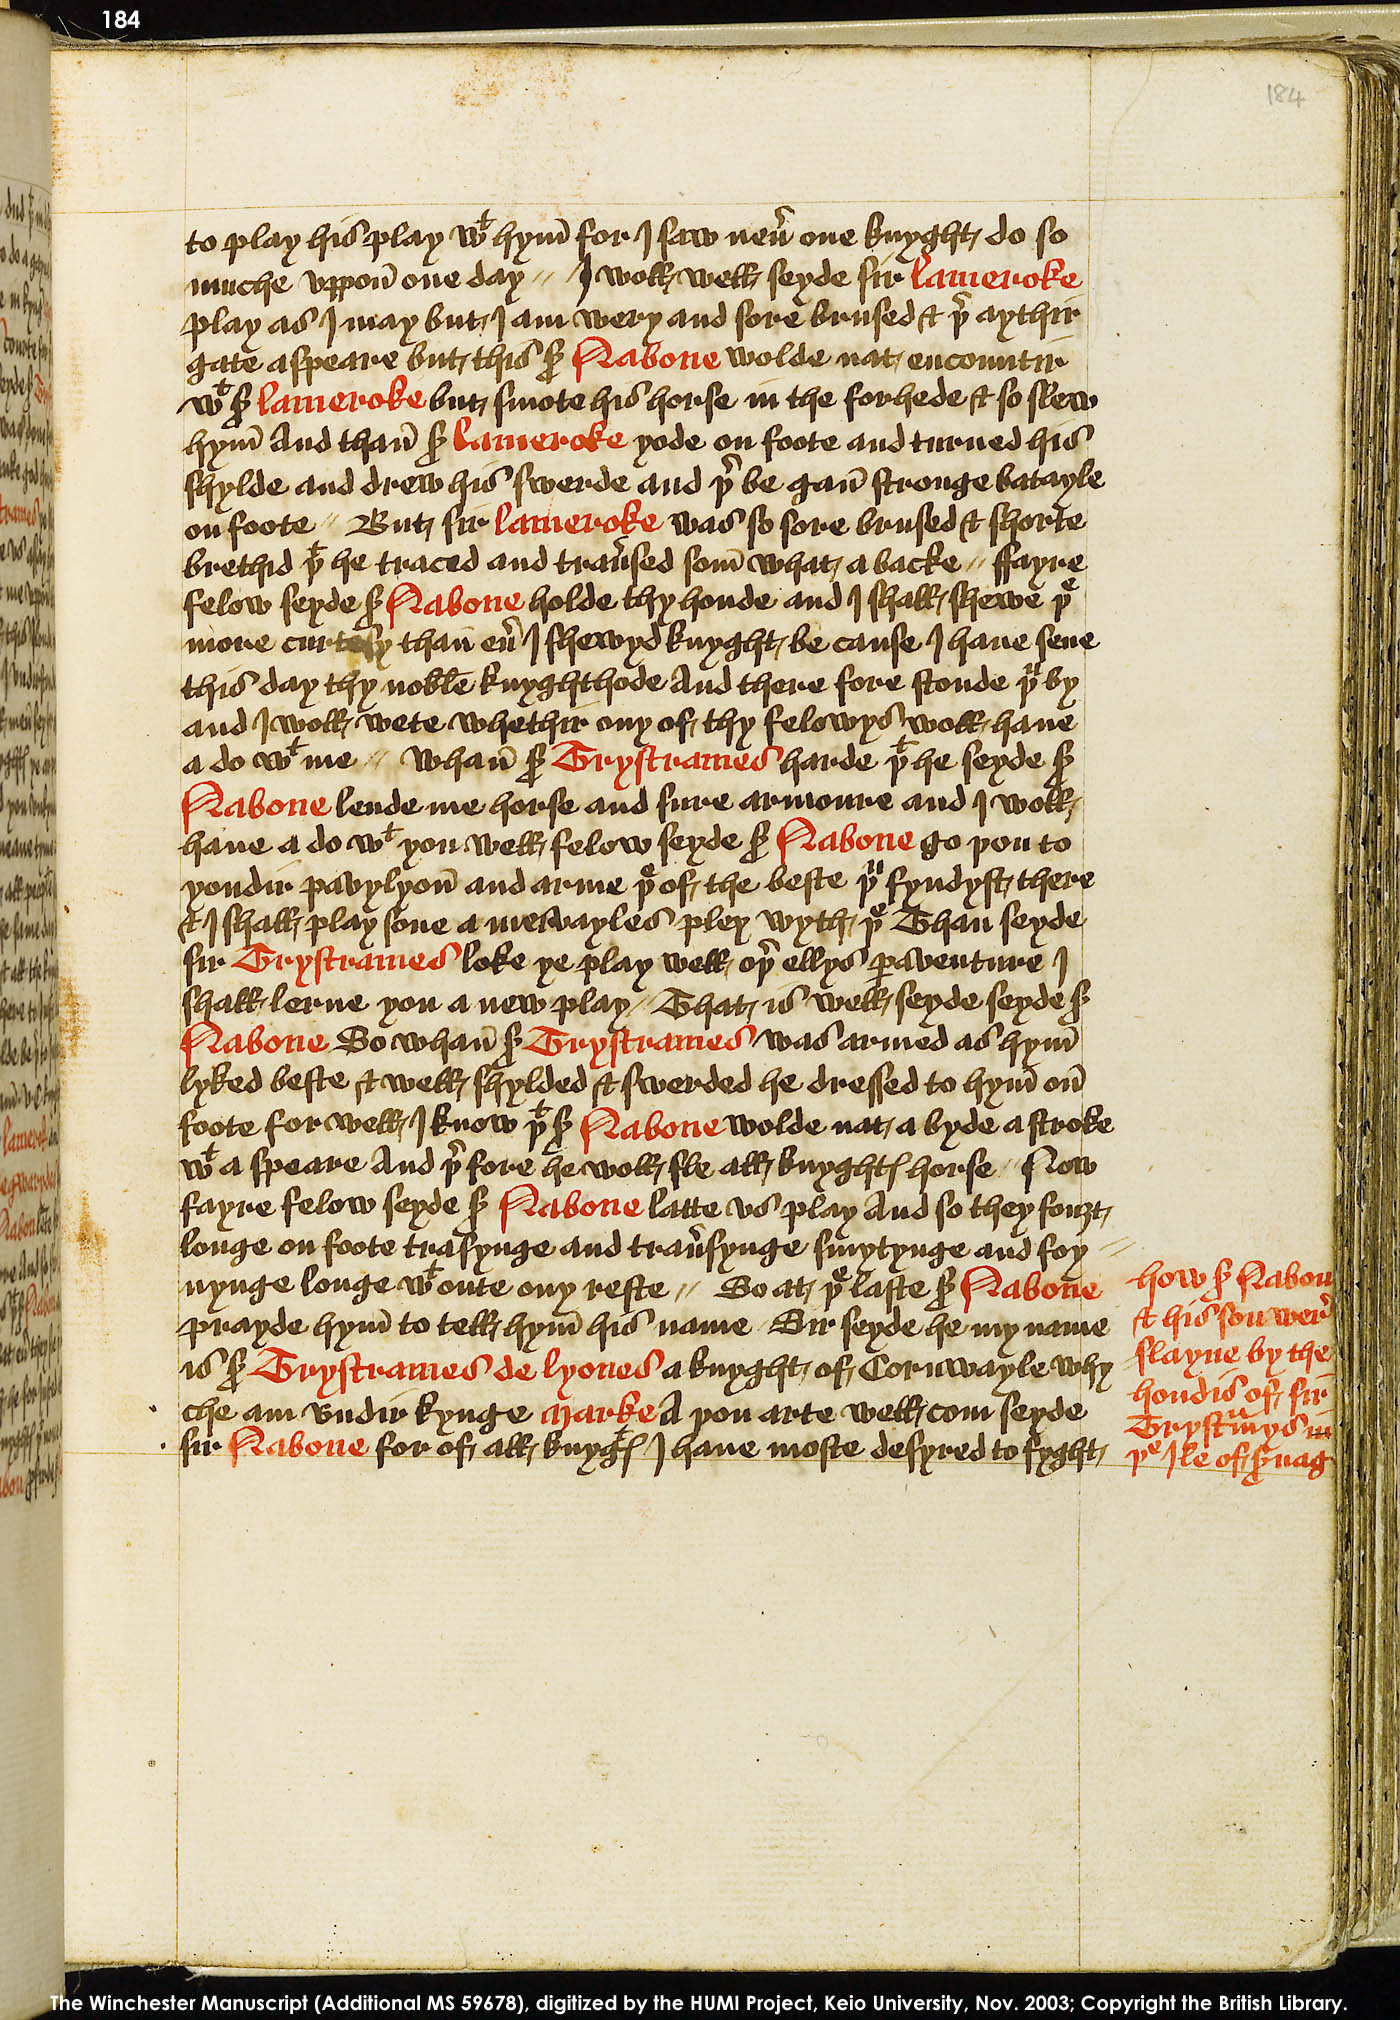 184
184
to play his play wᵗ hym̄ for I saw neu̾ one knyght do so
muche vppon̄ one day // I woll well seyde sir Lameroke
play as I may but I am wery and sore brused & þ̾ aythir
gate a speare but this s̾ Nabone wolde nat encountir
wᵗ s̾ Lameroke but smote his horse in the forhede & so slew
hym̄ And than̄ s̾ Lameroke yode on foote and turned his
shylde and drew his swerde and þ̾ be gan̄ stronge batayle
on foote // But sir Lameroke was so sore brused & shorte
brethid þᵗ he traced and trau̾sed som̄ what a backe // ffayre
felow seyde s̾ Nabone holde thy honde and I shall shewe þᵉ
more curtesy than̄ eu̾ I shewyd knyght be cause I haue sene
this day thy noble knyghthode And there fore stonde þᵘ by
and I woll wete whethir ony of thy felowys woll haue
a do wᵗ me // Whan̄ s̾ Trystrames harde þᵗ he seyde s̾
Nabone lende me horse and sure armoure and I woll
haue a do wᵗ you well felow seyde s̾ Nabone go þou to
yondir pavylyon̄ and arme þᵉ of the beste þᵘ fyndyst there
& I shall play sone a mervayles pley wyth þᵉ Than seyde
sir Trystrames loke ye play well oþ̾ ellys ꝑaventure I
shall lerne you a new play / That is well seyde seyde s̾
Nabone So whan̄ s̾ Trystrames was armed as hym̄
lyked beste & well shylded & swerded he dressed to hym̄ on̄
foote for well I know þᵗ s̾ Nabone wolde nat a byde a stroke
wᵗ a speare And þ̾ fore he woll sle all knyghtꝭ horse // Now
fayre felow seyde s̾ Nabone latte vs play And so they fouȝt
longe on foote trasynge and trau̾synge smytynge and foy //
nynge longe wᵗoute ony reste // So at þᵉ laste s̾ Nabone
prayde hym̄ to tell hym̄ his name Sir seyde he my name
is s̾ Trystrames de Lyones a knyght of Cornwayle why
che am vndir kynge Marke A þou arte well com seyde
sir Nabone for of all knyȝtꝭ I haue moste desyred to fyght
how s̾ Nabon
& his son wer̾
slayne by the
hondis of sir
Trystᵃmys in
þᵉ Ile of s̾uag
The Winchester Manuscript (Additional MS 59678), digitized by the HUMI Project, Keio University, Nov. 2003; Copyright the British Library.